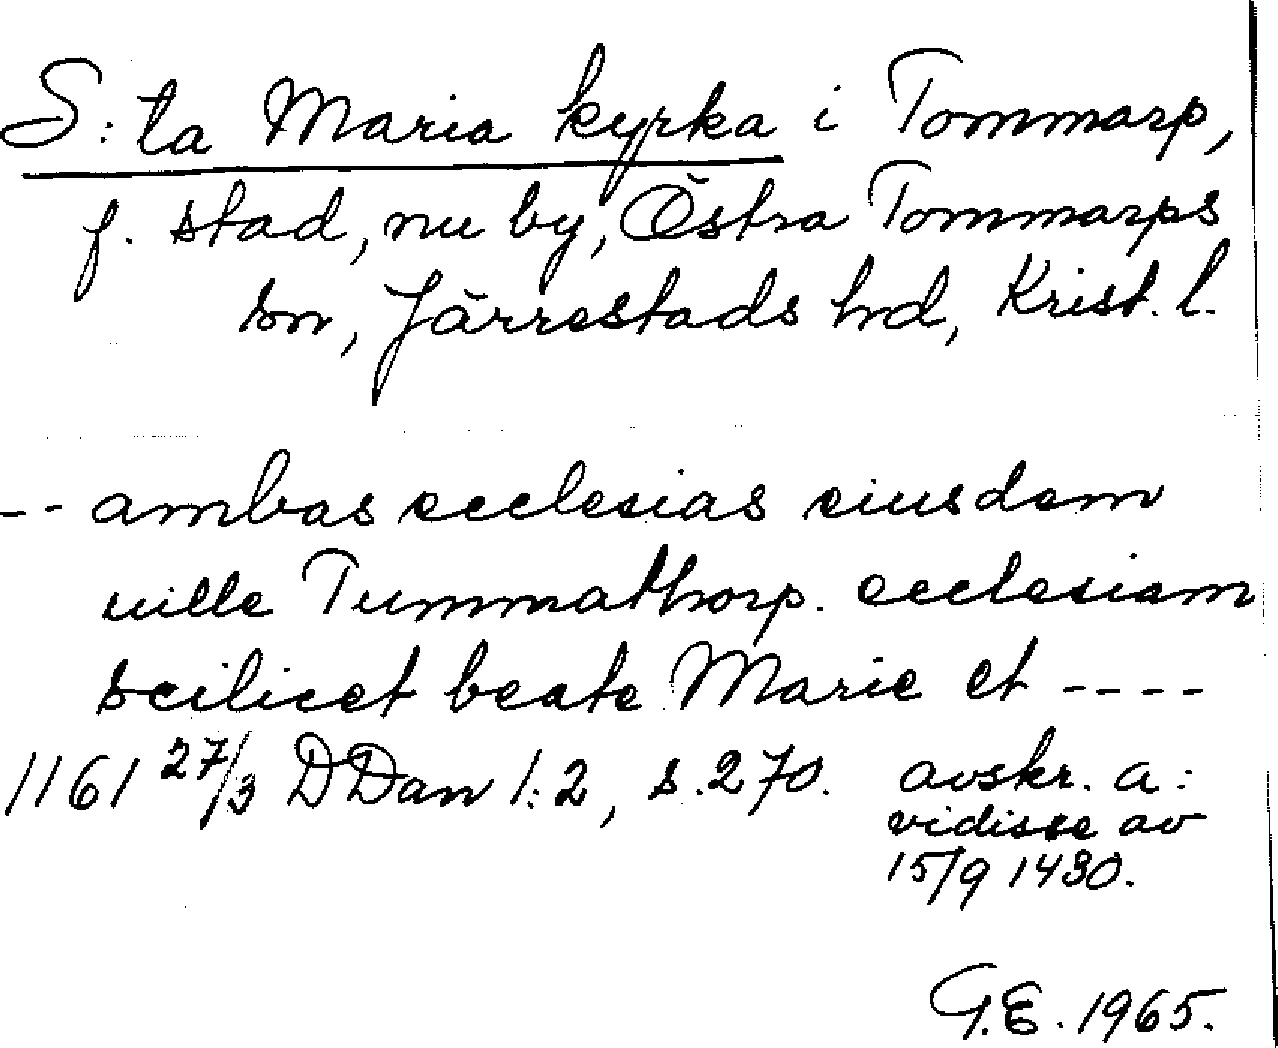 S:ta Maria kyrka i Tommarp,
f. stad, nu by, Östra Tommarps
sn, Järrestads hd, Krist. l.
-- ambas ecclesias eiusdem
uille Tummathorp. ecclesiam
scilicet beate Marie et ----
1161 27/3 DDan 1:2, s. 270. avskr. a:
vidisse av
15/9 1430.
G.E. 1965.